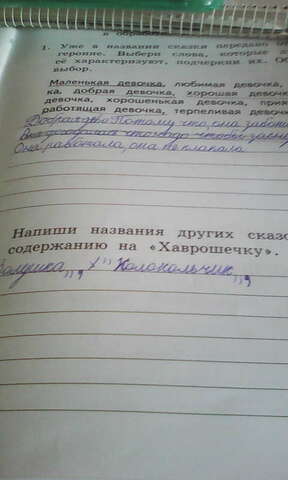 и обработ
1. Уже в названии сказки передано
героине. Выбери слова, которые
её характеризуют, подчеркни их. Об
выбор.
Маленькая девочка, любимая девочка,
ка, добрая девочка, хорошая девоч
девочка, хорошенькая девочка, прия
работящая девочка, терпеливая девоч
Потому что она
чтобы
Она работала, она не плакала
Напиши названия других сказо
содержанию на «Хаврошечку».
"Колокольчик",,